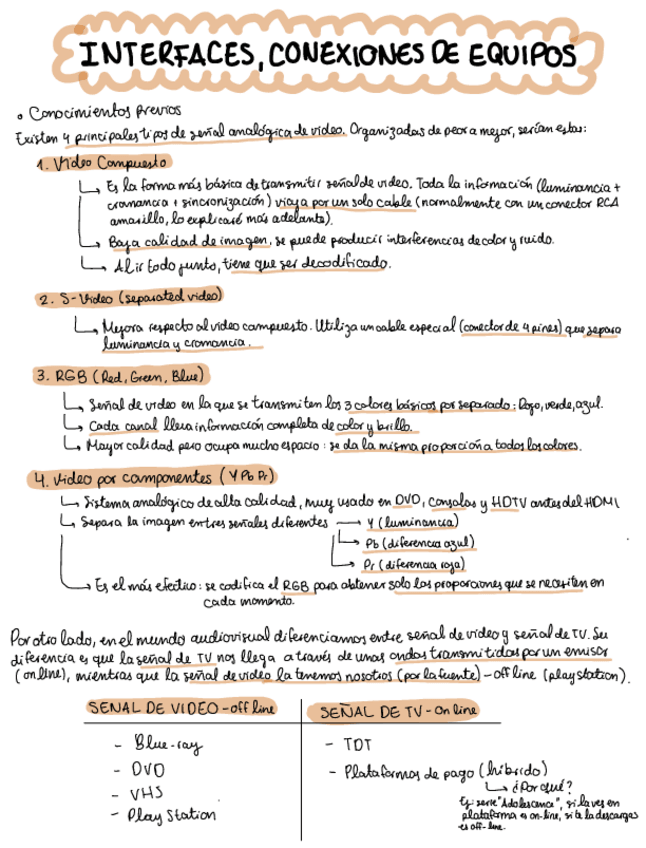 INTERFACES, CONEXIONES DE EQUIPOS
• Conocimientos previos
Existen 4 principales tipos de señal analógica de video. Organizadas de peor a mejor, serían estas:
1. Video Compuesto
↳ Es la forma más básica de transmitir señal de video. Toda la información (luminancia +
cromancia + sincronización) viaja por un solo cable (normalmente con un conector RCA
amarillo, lo explicaré más adelante).
↳ Baja calidad de imagen, se puede producir interferencias de color y ruido.
↳ Al ir todo junto, tiene que ser decodificado.
2. S-Video (separated video)
↳ Mejora respecto al video compuesto. Utiliza un cable especial (conector de 4 pines) que separa
luminancia y cromancia.
3. RGB (Red, Green, Blue)
↳ Señal de video en la que se transmiten los 3 colores básicos por separado: Rojo, verde, azul.
↳ Cada canal lleva información completa de color y brillo.
↳ Mayor calidad pero ocupa mucho espacio: se da la misma proporción a todos los colores.
4. Video por componentes (YPbPr)
↳ Sistema analógico de alta calidad, muy usado en DVD, consolas y HDTV antes del HDMI
↳ Separa la imagen en tres señales diferentes → Y (luminancia)
↳ Pb (diferencia azul)
↳ Pr (diferencia roja)
↳ Es el más efectivo: se codifica el RGB para obtener solo las proporciones que se necesiten en
cada momento.
Por otro lado, en el mundo audiovisual diferenciamos entre señal de video y señal de TV. Su
diferencia es que la señal de TV nos llega a través de unas ondas transmitidas por un emisor
(online), mientras que la señal de video la tenemos nosotros (por la fuente) - off line (play station).
SEÑAL DE VIDEO - off line
- Blue-ray
- DVD
- VHS
- Play Station
SEÑAL DE TV - On line
- TDT
- Plataformas de pago (híbrido)
↳ ¿Por qué?
Ej: serie "Adolescence", si la ves en
plataforma es on-line, si te la descargas
es off-line.